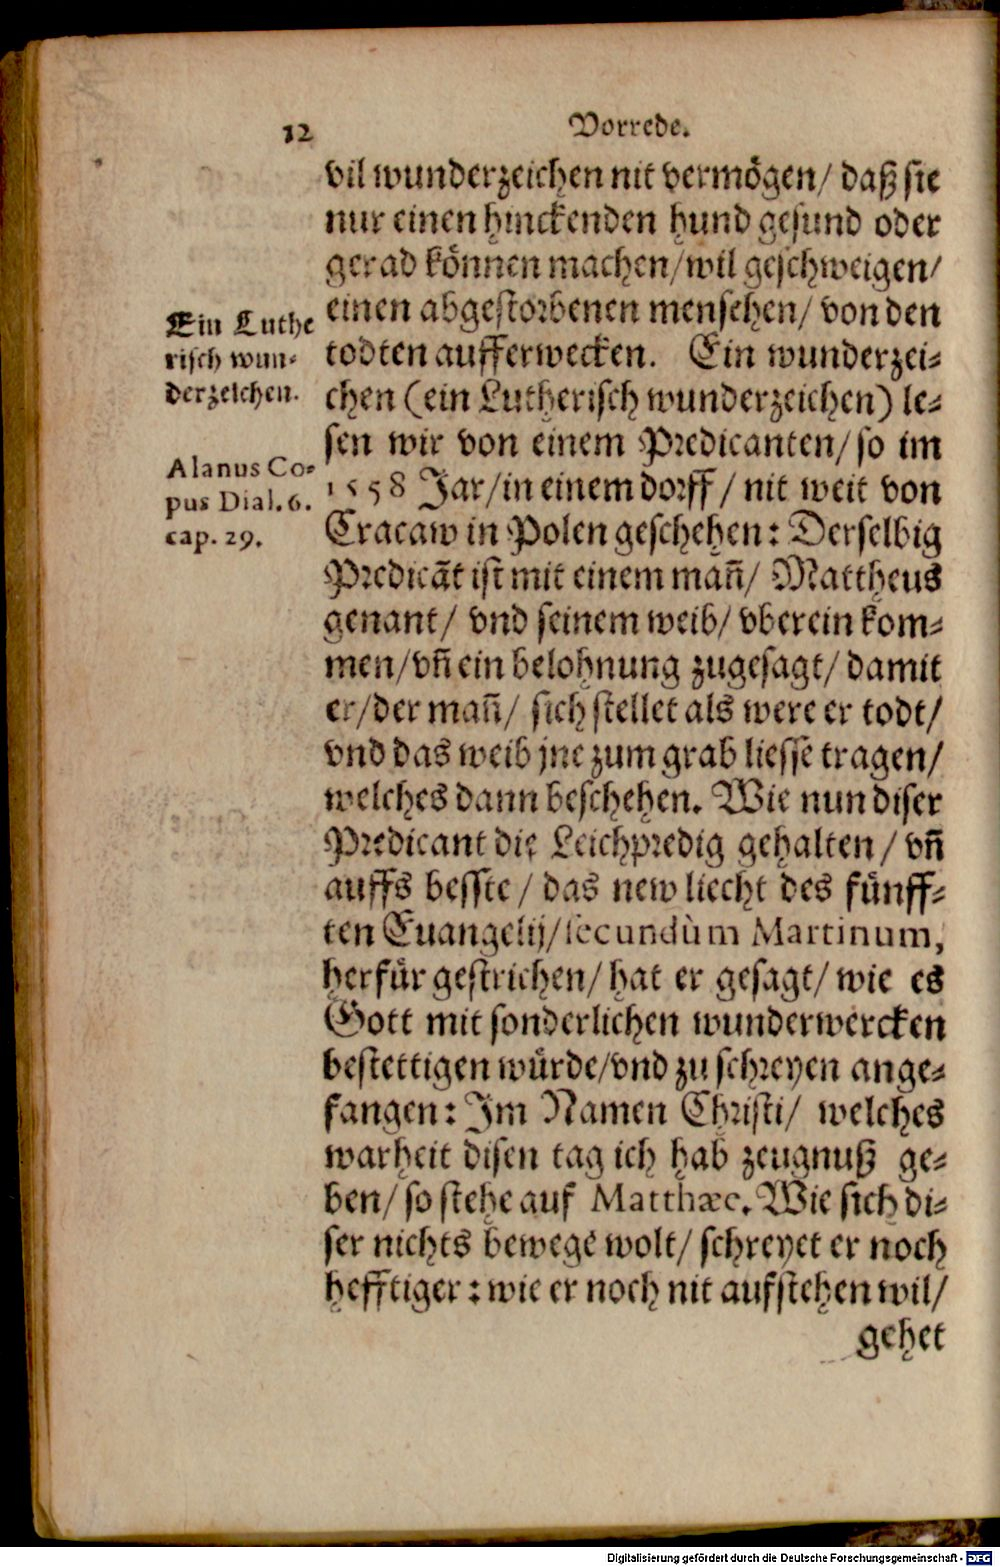 12 Vorrede.
vil wunderzeichen nit vermögen/ daß sie
nur einen hinckenden hund gesund oder
gerad können machen/ wil geschweigen/
einen abgestorbenen menschen/ von den
todten aufferwecken. Ein wunderzei-
chen (ein Lutherisch wunderzeichen) le-
sen wir von einem Predicanten/ so im
1558 Jar/ in einem dorff/ nit weit von
Cracaw in Polen geschehen: Derselbig
Predicāt ist mit einem mañ/ Mattheus
genant/ vnd seinem weib/ vberein kom-
men/ vñ ein belohnung zugesagt/ damit
er/ der mañ/ sich stellet als were er todt/
vnd das weib jne zum grab liesse tragen/
welches dann beschehen. Wie nun diser
Predicant die Leichpredig gehalten/ vñ
auffs besste/ das new liecht des fünff-
ten Euangelij/ secundùm Martinum,
herfür gestrichen/ hat er gesagt/ wie es
Gott mit sonderlichen wunderwercken
bestettigen würde/ vnd zu schreyen ange-
fangen: Im Namen Christi/ welches
warheit disen tag ich hab zeugnuß ge-
ben/ so stehe auf Matthæe. Wie sich di-
ser nichts bewegē wolt/ schreyet er noch
hefftiger: wie er noch nit aufstehen wil/
gehet
Ein Luthe
risch wun-
derzeichen.
Alanus Co-
pus Dial. 6.
cap. 29.
Digitalisierung gefördert durch die Deutsche Forschungsgemeinschaft - DFG